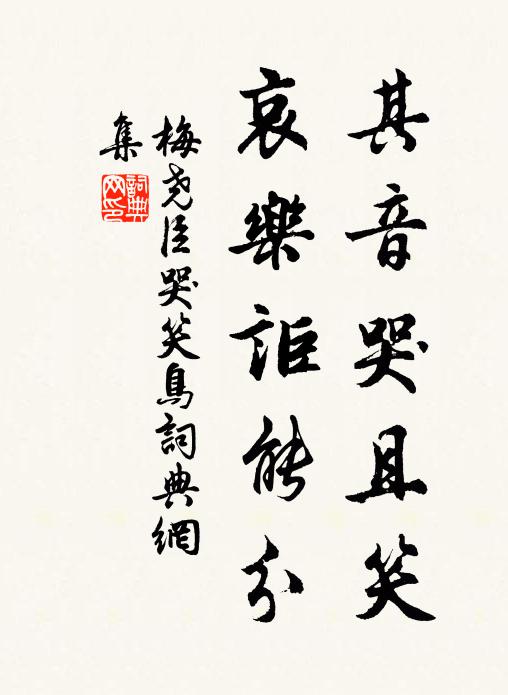 其音哭且笑
哀樂詎能分
梅尧臣哭笑鳥詞典網
集
詞典
网印